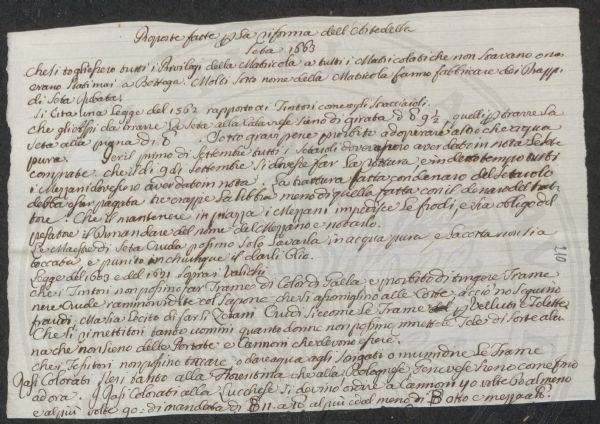 Proposte fatte p La riforma dell'Obito della
Seta 1663
Che si togliessero tutti i Privilegi della Matricola a tutti i Matricolati che non stavano o no
erano stati mai a Bottega. Molti sotto nome della Matricola fanno fabbricare dei Drappi
di Seta Rubata.
Si Cita una Legge del 1562 rapporto ai Tintori come gli Stacciaioli.
che gli aspi da trarre la Seta alla Calavrese siano di girata 9 ½, quelli p trarre la
Seta alla pigna di Sotto gravi pene proibite adoperare altro che acqua
pura. p il primo di Settembre tutti i Setaioli dovessero aver dato in nota le sete
comprate. che il dì 9 di Settembre si dovesse far la Vettura, e in detto tempo tutti
i Mezzani dovessero aver dato in nota; La trattura fatta con denaro del Setaiolo
debba esser pagata tre crazzie la Libbra meno di quella fatta con il denaro del trat-
tore. Che il mantenere in piazza i Mezzani impedisce le frodi, e sia obligo del
pesatore il Domandare del nome del Mezzano e notarlo.
Le Maestre di Seta Cruda possino solo Lavarla in acqua pura, e la cotta non sia
toccata e punito in chiunque il darli Olio.
Legge del 1603 e del 1631 sopra i Valichi
che i Tintori non possino far Trame di Color di Paglia e morbito di tingere Trame
nere Crude rammorvidite col Sapone che si assomiglino alle Cotte, acciò no seguino
fraudi, Ma sia Lecito di farli Crudi siccome le Trame p Velluti e Telette.
Che si gi mettitori tanto uomini quante donne non possino mettere Tele di sorte alcu
na che non sieno delle Portate e Cannoni che devono essere.
che i Tessitori non possino tirare o dare acqua agli Ormesini
Rasi Colorati Neri tanto alla Fiorentina che alla Bolognese Genovese sieno come fino
adora. Rasi Colorati alla Lucchese si devino ordire a Cannoni 40 volte 60 al meno
e al più volte 90: di mandata di 11. a 10 al più e al meno di otto e mezza.